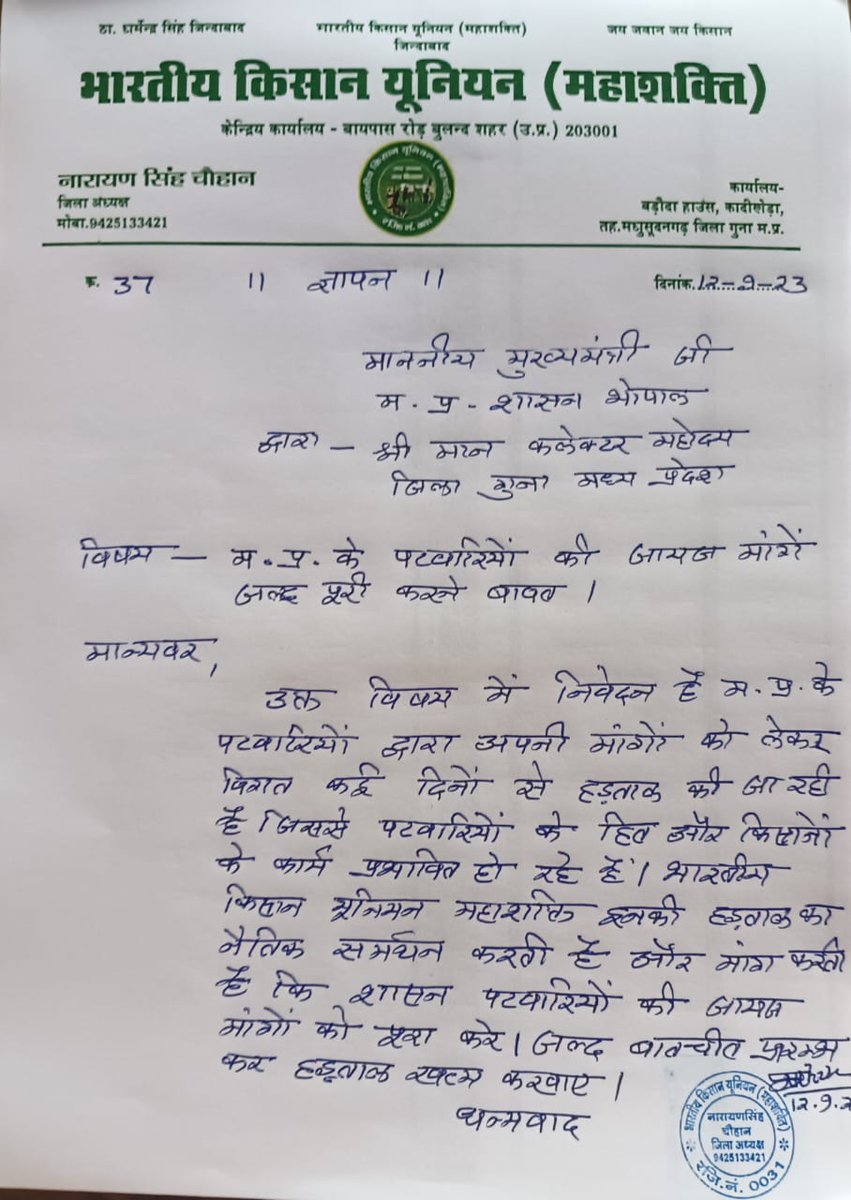 ठा. धर्मेन्द्र सिंह जिन्दाबाद
भारतीय किसान यूनियन (महाशक्ति)
जिन्दाबाद
जय जवान जय किसान
भारतीय किसान यूनियन (महाशक्ति)
केन्द्रिय कार्यालय - बायपास रोड़ बुलन्द शहर (उ.प्र.) 203001
नारायण सिंह चौहान
जिला अध्यक्ष
मोबा.9425133421
भारतीय किसान यूनियन (महाशक्ति)
रजि.नं. 0031
कार्यालय-
बड़ौदा हाउस, कादीखेड़ा,
तह.मधुसूदनगढ़ जिला गुना म.प्र.
क्र. 37 ।। ज्ञापन ।। दिनांक.12-9-23
माननीय मुख्यमंत्री जी
म. प्र - शासन भोपाल
द्वारा - श्री मान कलेक्टर महोदय
जिला गुना मध्य प्रदेश
विषय - म.प्र. के पटवारियों की जायज मांगें
जल्द पूरी करने बावत ।
मान्यवर,
उक्त विषय में निवेदन हैं म.प्र. के
पटवारियों द्वारा अपनी मांगों को लेकर
विगत कई दिनों से हड़ताल की जा रही
हैं जिससे पटवारियों के हित और किसानों
के कार्य प्रभावित हो रहे हैं। भारतीय
किसान यूनियन महाशक्ति इनकी हड़ताल का
नैतिक समर्थन करती हैं और मांग करती
हैं कि शासन पटवारियों की जायज
मांगों को पूरा करे। जल्द बातचीत प्रारम्भ
कर हड़ताल खत्म करवाए।
धन्यवाद
12.9.2
भारतीय किसान यूनियन (महाशक्ति)
नारायणसिंह
चौहान
जिला अध्यक्ष
9425133421
रजि.नं. 0031